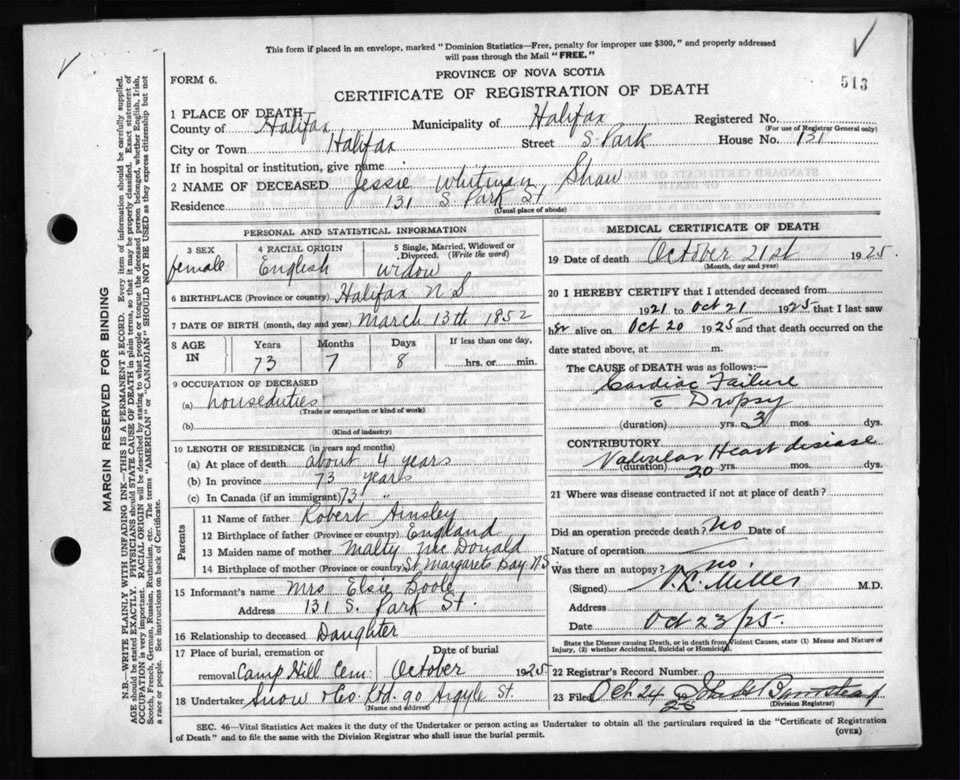 This form if placed in an envelope, marked "Dominion Statistics—Free, penalty for improper use $300," and properly addressed
will pass through the Mail "FREE."
FORM 6.
PROVINCE OF NOVA SCOTIA
513
CERTIFICATE OF REGISTRATION OF DEATH
1 PLACE OF DEATH
County of Halifax Municipality of Halifax Registered No.
(For use of Registrar General only)
City or Town Halifax Street S. Park House No. 131
If in hospital or institution, give name
2 NAME OF DECEASED Jessie Whitman Shaw
Residence 131 S. Park St
(Usual place of abode)
PERSONAL AND STATISTICAL INFORMATION
3 SEX 4 RACIAL ORIGIN 5 Single, Married, Widowed or
Divorced. (Write the word)
female English widow
6 BIRTHPLACE (Province or country) Halifax N S
7 DATE OF BIRTH (month, day and year) March 13th 1852
8 AGE IN Years Months Days If less than one day,
73 7 8 hrs. or min.
9 OCCUPATION OF DECEASED
(a) houseduties
(Trade or occupation or kind of work)
(b)
(Kind of industry)
10 LENGTH OF RESIDENCE (in years and months)
(a) At place of death about 4 years
(b) In province 73 years
(c) In Canada (if an immigrant) 73 "
Parents
11 Name of father Robert Ainsley
12 Birthplace of father (Province or country) England
13 Maiden name of mother Malty Mc Donald
14 Birthplace of mother (Province or country) St Margarets Bay NS
15 Informant's name Mrs Elsie Boole
Address 131 S. Park St.
16 Relationship to deceased Daughter
17 Place of burial, cremation or Date of burial
removal Camp Hill Cem. October 1925
18 Undertaker Snow & Co Ltd. 90 Argyle St.
(Name and address)
MEDICAL CERTIFICATE OF DEATH
19 Date of death October 21st 1925
(Month, day and year)
20 I HEREBY CERTIFY that I attended deceased from
1921 to Oct 21 1925 that I last saw
her alive on Oct 20 1925 and that death occurred on the
date stated above, at m.
The CAUSE of DEATH was as follows:—
Cardiac Failure
c Dropsy
(duration) yrs. 3 mos. dys.
CONTRIBUTORY
Valvular Heart disease
(duration) 20 yrs. mos. dys.
21 Where was disease contracted if not at place of death?
Did an operation precede death? No Date of
Nature of operation
Was there an autopsy? no.
(Signed) Miller M.D.
Address
Date Oct 23/25
State the Disease causing Death, or in death from Violent Causes, state (1) Means and Nature of
Injury, (2) whether Accidental, Suicidal or Homicidal.
22 Registrar's Record Number
23 Filed Oct. 24 1925
(Division Registrar)
SEC. 46—Vital Statistics Act makes it the duty of the Undertaker or person acting as Undertaker to obtain all the particulars required in the "Certificate of Registration
of Death" and to file the same with the Division Registrar who shall issue the burial permit.
(OVER)
MARGIN RESERVED FOR BINDING
N.B.—WRITE PLAINLY WITH UNFADING INK—THIS IS A PERMANENT RECORD. Every item of information should be carefully supplied.
AGE should be stated EXACTLY. PHYSICIANS should STATE CAUSE OF DEATH in plain terms, so that it may be properly classified. Exact statement of
OCCUPATION is very important. RACIAL ORIGIN will be described by stating to what people or tongue the deceased person belonged, whether English, Irish,
Scotch, French, German, Russian, Ruthenian, etc. The terms "AMERICAN" or "CANADIAN" SHOULD NOT BE USED as they express citizenship but not
a race or people. See instructions on back of Certificate.